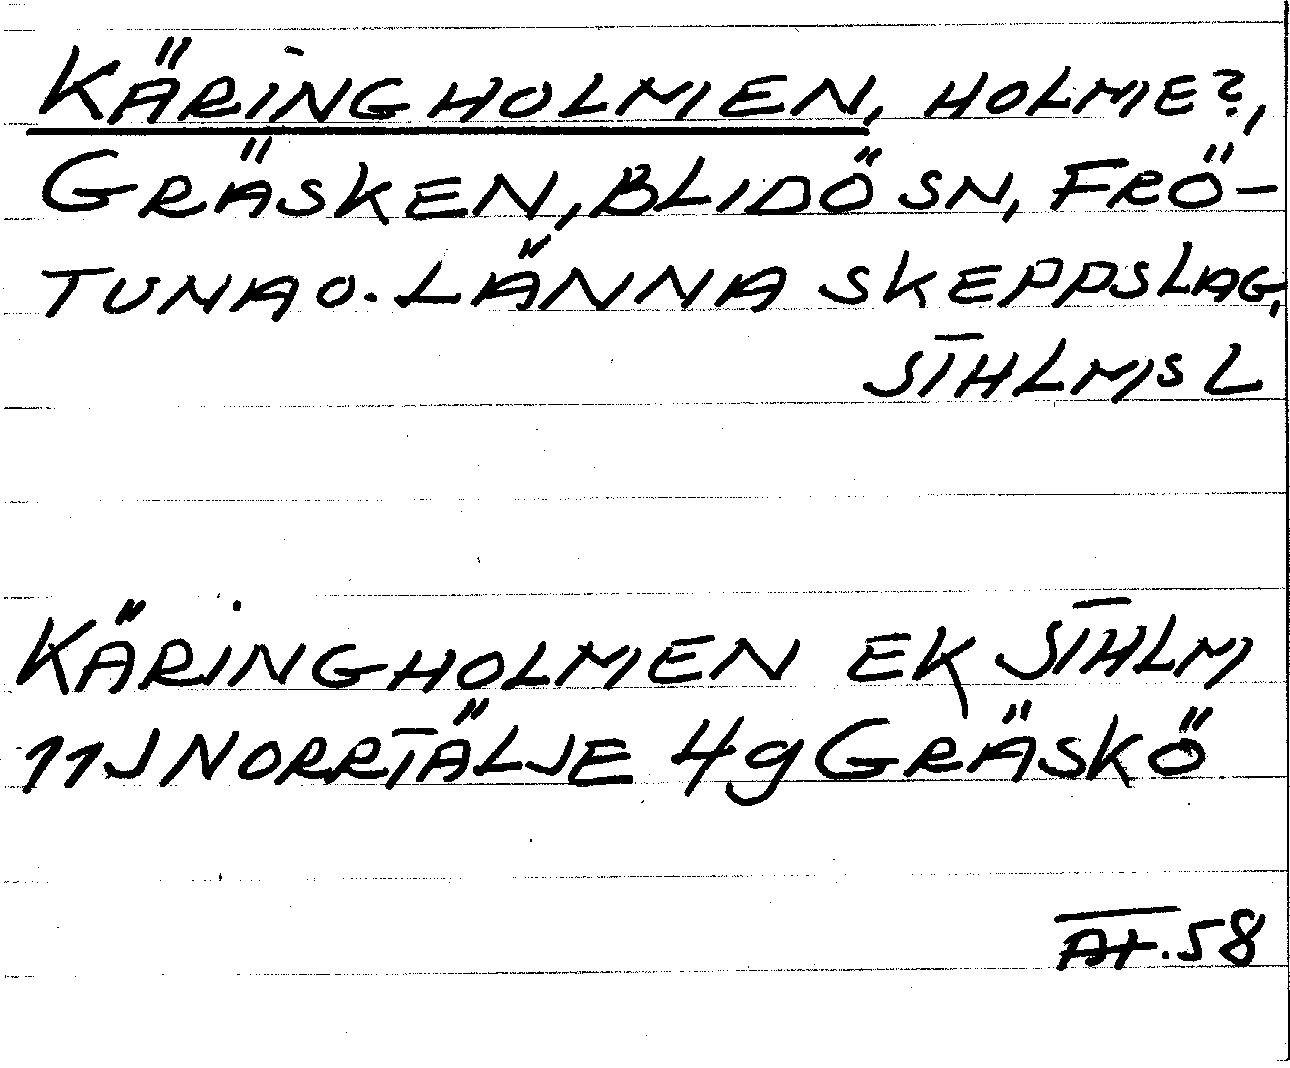 KÄRINGHOLMEN, HOLME?,
GRÄSKEN, BLIDÖ SN, FRÖ-
TUNA O. LÄNNA SKEPPSLAG,
STHLMS L
KÄRINGHOLMEN EK STHLM
11J NORRTÄLJE 4g GRÄSKÖ
AF.58